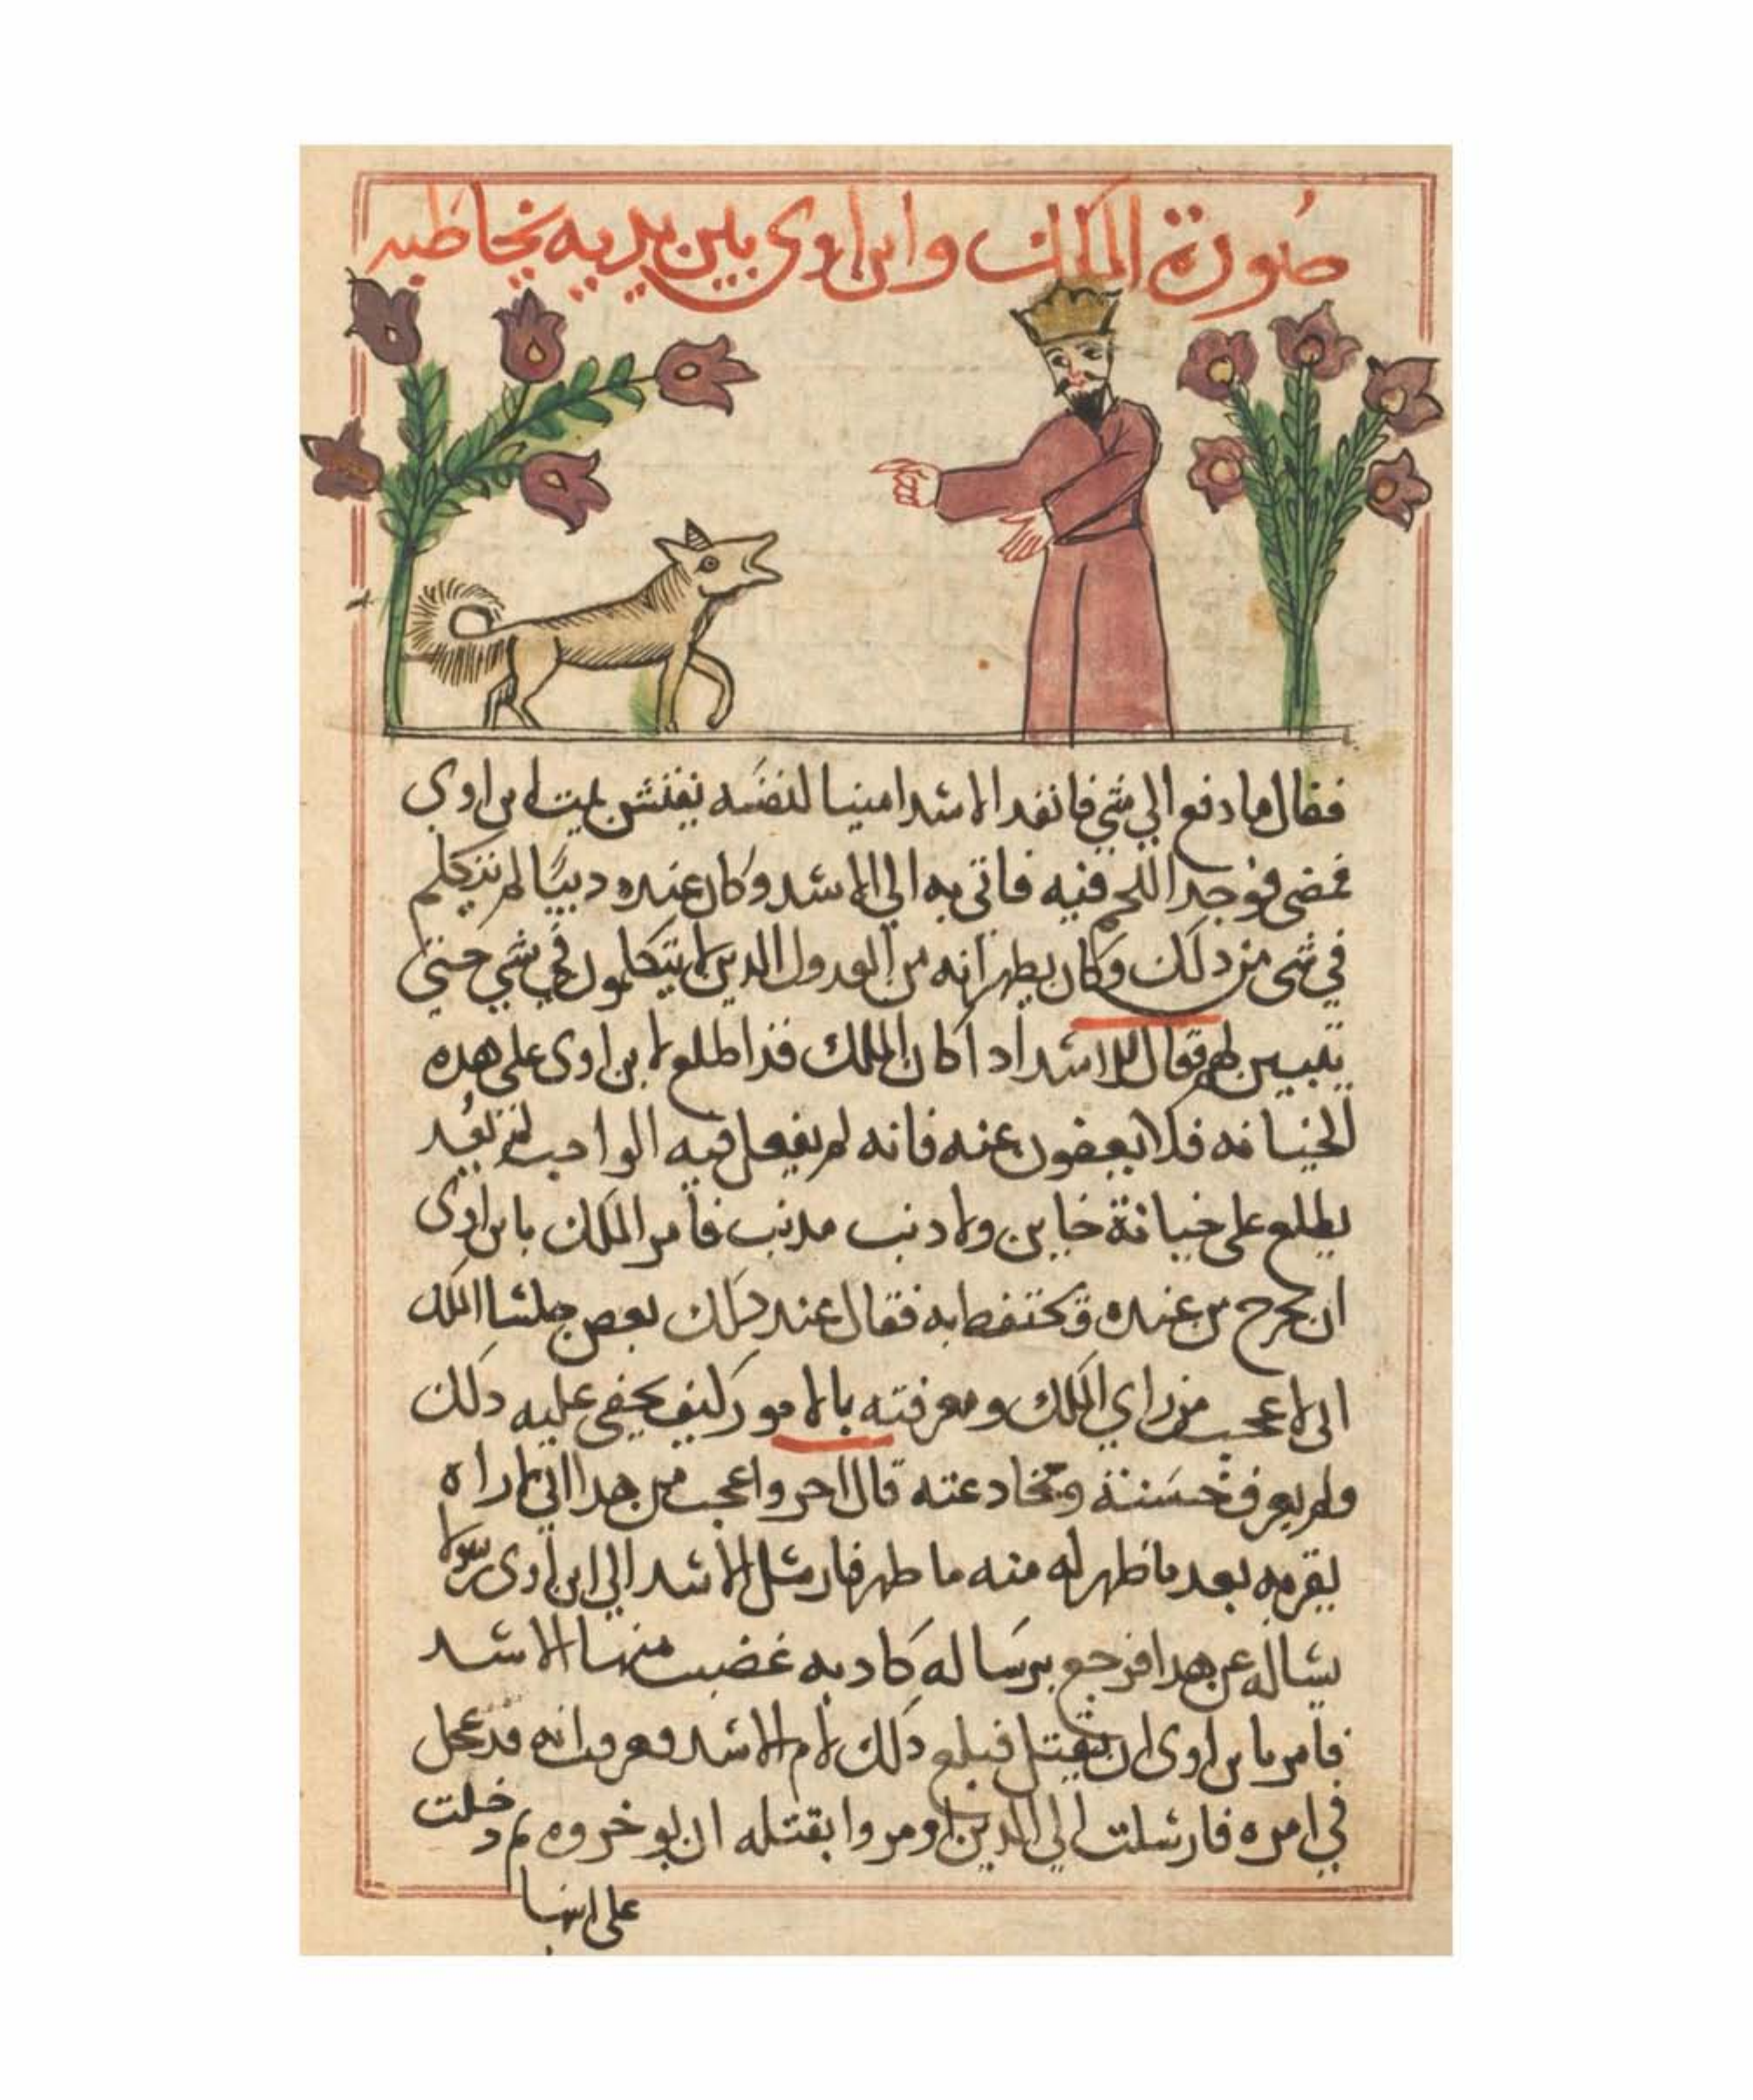 صورة الملك وابن اوى بين يديه يخاطبه
فقال ما دفع الي شي فانفد الاسد امينا لنفسه يفتش بيت ابن اوي
فمضى فوجد اللحم فيه فاتى به الي الاسد وكان عنده ديبا لم يتكلم
في شي من دلك وكان يظهر انه من العدول الدين لا يتكلمون في شي حتي
يتبين لهم فقال للاسد ادا كان الملك قد اطلع لابن اوى على هده
الخيانه فلا يعفون عنه فانه لم يفعل فيه الواجب لم يعد
يطلع على خيانة خاين ولا دنب مدنب فامر الملك بابن اوى
ان يخرج من عنده ويحتفظ به فقال عند دلك بعض جلسا الملك
اني لاعجب من راي الملك ومعرفته بالامور كيف يخفى عليه دلك
ولم يعرف ومخادعته قال اخر واعجب من هدا اني اراه
بعد ما ظهر له منه ما ظهر فارسل الاسد الي ابن اوى رسولا
يساله عن هدا فرجع برساله كادبه غضب منها الاسد
فامر بابن اوى ان يقتل فبلغ دلك لام الاسد فعرفت انه قد عجل
في امره فارسلت الي الدين اومروا بقتله ان يوخروه ودخلت
على ابنها